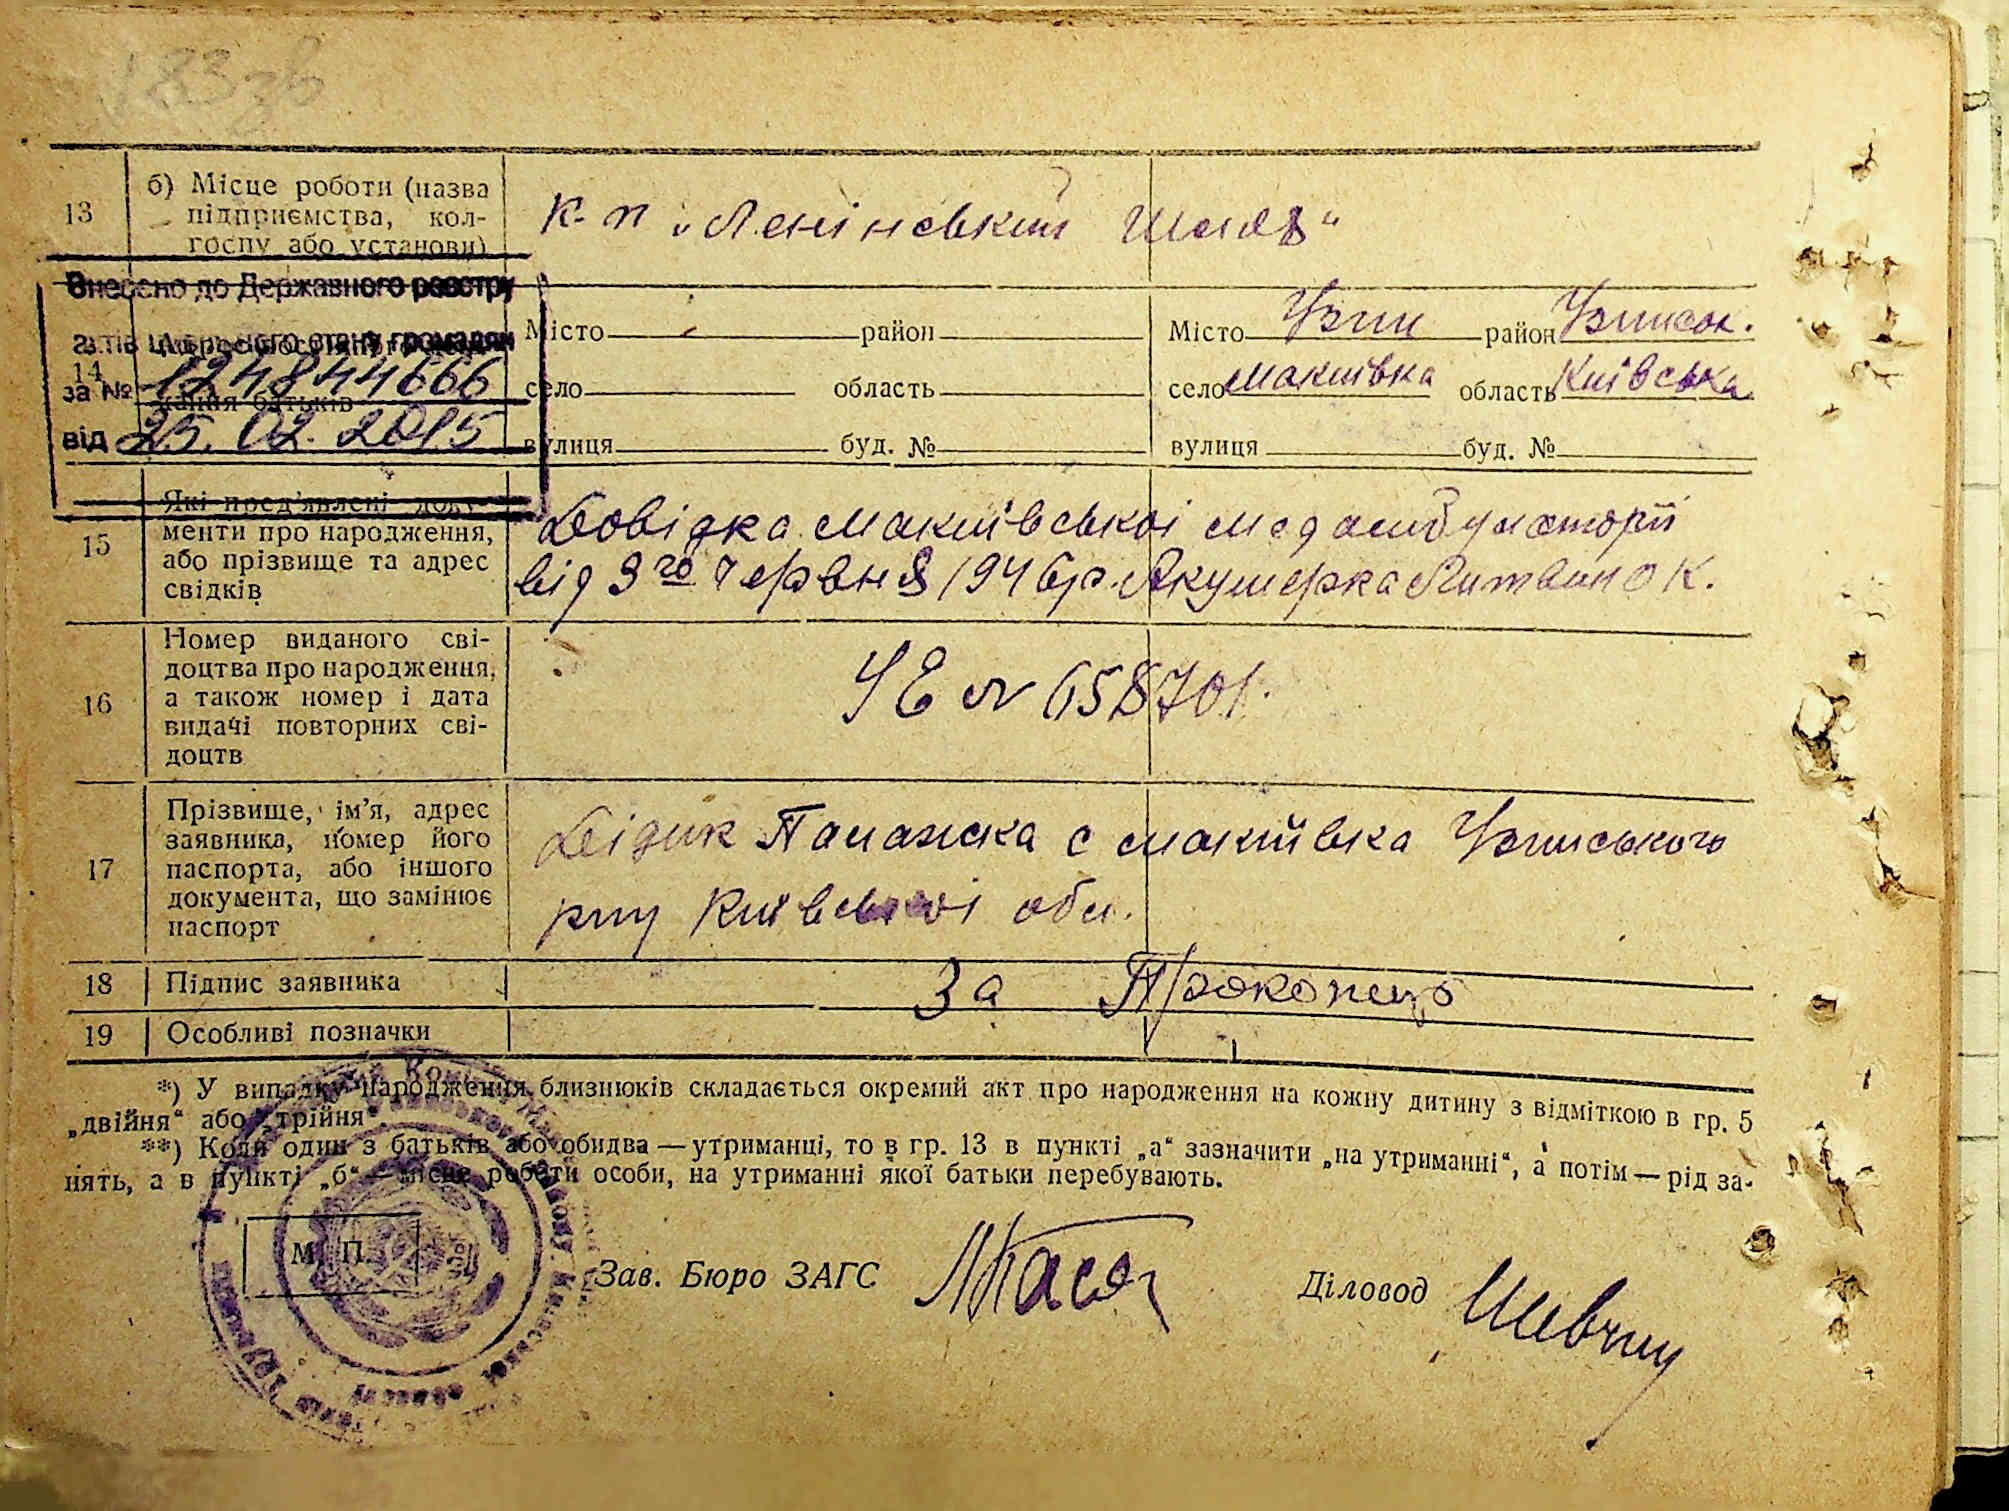 183 зв
13
б) Місце роботи (назва
підприємства, кол-
госпу або установи)
к-п „Ленінський Шлях“
Внесено до Державного реєстру
актів цивільного стану громадян
за № 124844666
від 25.02.2015
14
дання батьків
Місто район
село область
вулиця буд. №
Місто Узин район Узинськ.
село Макіївка область Київська
вулиця буд. №
15
Які пред’явлені доку-
менти про народження,
або прізвище та адрес
свідків
Довідка Макиївської медамбулаторії
від 9го червня 1946р. Акушерка Литвинок.
16
Номер виданого сві-
доцтва про народження,
а також номер і дата
видачі повторних сві-
доцтв
УЕ № 658701.
17
Прізвище, ім’я, адрес
заявника, номер його
паспорта, або іншого
документа, що замінює
паспорт
Дідик Палажка с Макиївка Узинського
р-ну Київської обл.
18
Підпис заявника
За Прокопець
19
Особливі позначки
*) У випадку народження близнюків складається окремий акт про народження на кожну дитину з відміткою в гр. 5
„двійня“ або „трійня“.
**) Коли один з батьків або обидва — утриманці, то в гр. 13 в пункті „а“ зазначити „на утриманні“, а потім — рід за-
нять, а в пункті „б“ — місце роботи особи, на утриманні якої батьки перебувають.
М. П.
Зав. Бюро ЗАГС
Діловод